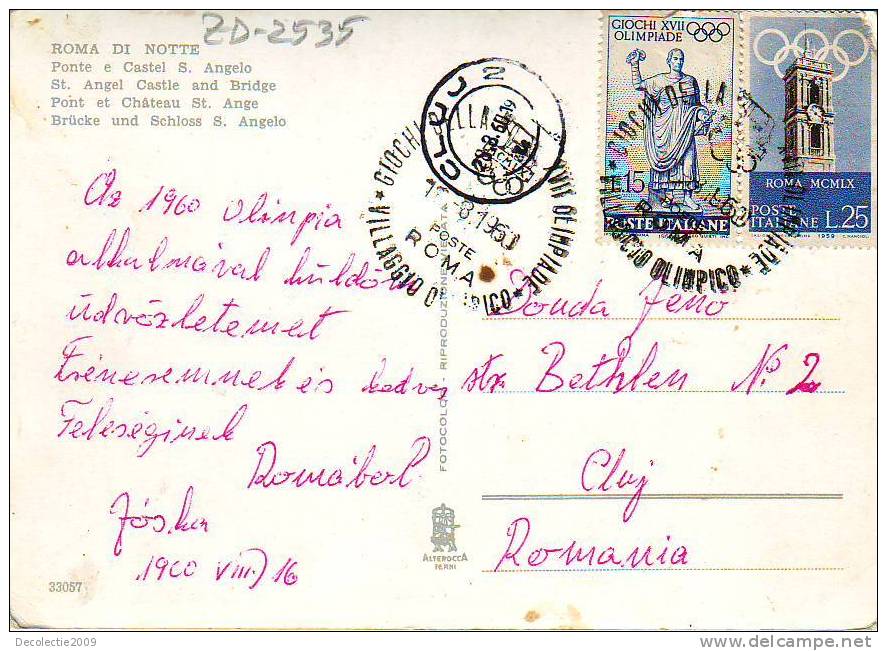 ZD-2535
ROMA DI NOTTE
Ponte e Castel S. Angelo
St. Angel Castle and Bridge
Pont et Château St. Ange
Brücke und Schloss S. Angelo
GIOCHI XVII
OLIMPIADE
L.15
POSTE ITALIANE
ROMA MCMLX
POSTE
ITALIANE L.25
1959
CLUJ 2
GIOCHI DELLA XVII OLIMPIADE
VILLAGGIO OLIMPICO
POSTE
ROMA
Az 1960 olimpia
alkalmával küldöm
üdvözletemet
és kedves
Feleséginek
Romából
Jóska
1960 VIII) 16
Donda Jeno
str Bethlen No. 2
Cluj
Romania
FOTOCOLOR - RIPRODUZIONE VIETATA
ALTEROCCA
TERNI
33057
Decolectie2009
delcampe.net